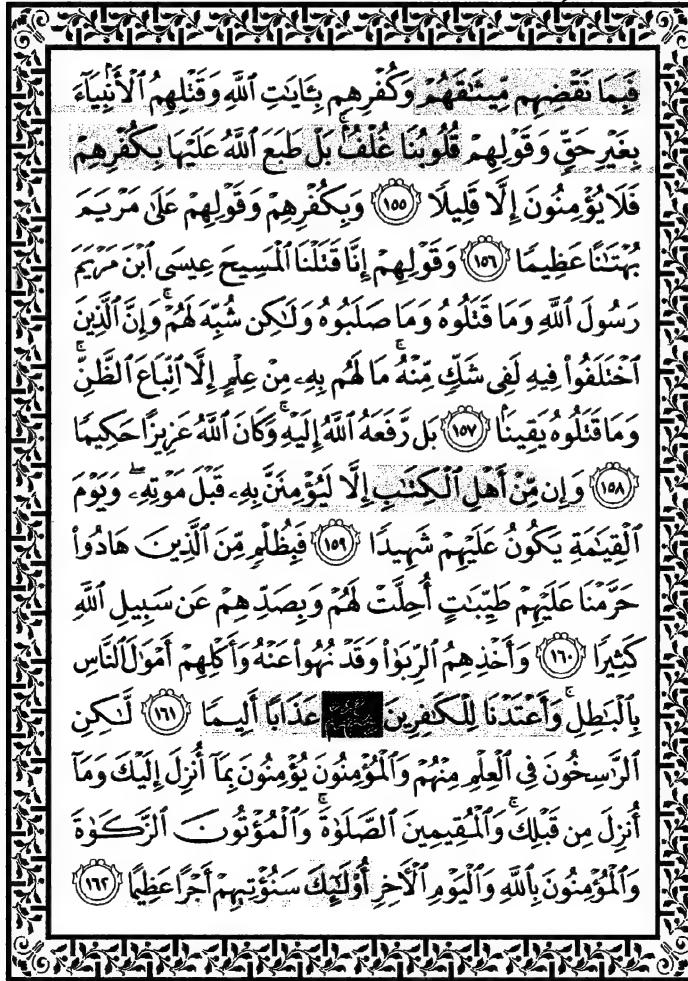 فَبِمَا نَقْضِهِم مِّيثَٰقَهُمْ وَكُفْرِهِم بِـَٔايَٰتِ ٱللَّهِ وَقَتْلِهِمُ ٱلْأَنۢبِيَآءَ
بِغَيْرِ حَقٍّ وَقَوْلِهِمْ قُلُوبُنَا غُلْفٌۢ ۚ بَلْ طَبَعَ ٱللَّهُ عَلَيْهَا بِكُفْرِهِمْ
فَلَا يُؤْمِنُونَ إِلَّا قَلِيلًا ١٥٥ وَبِكُفْرِهِمْ وَقَوْلِهِمْ عَلَىٰ مَرْيَمَ
بُهْتَٰنًا عَظِيمًا ١٥٦ وَقَوْلِهِمْ إِنَّا قَتَلْنَا ٱلْمَسِيحَ عِيسَى ٱبْنَ مَرْيَمَ
رَسُولَ ٱللَّهِ وَمَا قَتَلُوهُ وَمَا صَلَبُوهُ وَلَٰكِن شُبِّهَ لَهُمْ ۚ وَإِنَّ ٱلَّذِينَ
ٱخْتَلَفُوا۟ فِيهِ لَفِى شَكٍّ مِّنْهُ ۚ مَا لَهُم بِهِۦ مِنْ عِلْمٍ إِلَّا ٱتِّبَاعَ ٱلظَّنِّ ۚ
وَمَا قَتَلُوهُ يَقِينًۢا ١٥٧ بَل رَّفَعَهُ ٱللَّهُ إِلَيْهِ ۚ وَكَانَ ٱللَّهُ عَزِيزًا حَكِيمًا
١٥٨ وَإِن مِّنْ أَهْلِ ٱلْكِتَٰبِ إِلَّا لَيُؤْمِنَنَّ بِهِۦ قَبْلَ مَوْتِهِۦ ۖ وَيَوْمَ
ٱلْقِيَٰمَةِ يَكُونُ عَلَيْهِمْ شَهِيدًا ١٥٩ فَبِظُلْمٍ مِّنَ ٱلَّذِينَ هَادُوا۟
حَرَّمْنَا عَلَيْهِمْ طَيِّبَٰتٍ أُحِلَّتْ لَهُمْ وَبِصَدِّهِمْ عَن سَبِيلِ ٱللَّهِ
كَثِيرًا ١٦٠ وَأَخْذِهِمُ ٱلرِّبَوٰا۟ وَقَدْ نُهُوا۟ عَنْهُ وَأَكْلِهِمْ أَمْوَٰلَ ٱلنَّاسِ
بِٱلْبَٰطِلِ ۚ وَأَعْتَدْنَا لِلْكَٰفِرِينَ عَذَابًا أَلِيمًا ١٦١ لَّٰكِنِ
ٱلرَّٰسِخُونَ فِى ٱلْعِلْمِ مِنْهُمْ وَٱلْمُؤْمِنُونَ يُؤْمِنُونَ بِمَآ أُنزِلَ إِلَيْكَ وَمَآ
أُنزِلَ مِن قَبْلِكَ ۚ وَٱلْمُقِيمِينَ ٱلصَّلَوٰةَ ۚ وَٱلْمُؤْتُونَ ٱلزَّكَوٰةَ
وَٱلْمُؤْمِنُونَ بِٱللَّهِ وَٱلْيَوْمِ ٱلْءَاخِرِ أُو۟لَٰٓئِكَ سَنُؤْتِيهِمْ أَجْرًا عَظِيمًا ١٦٢